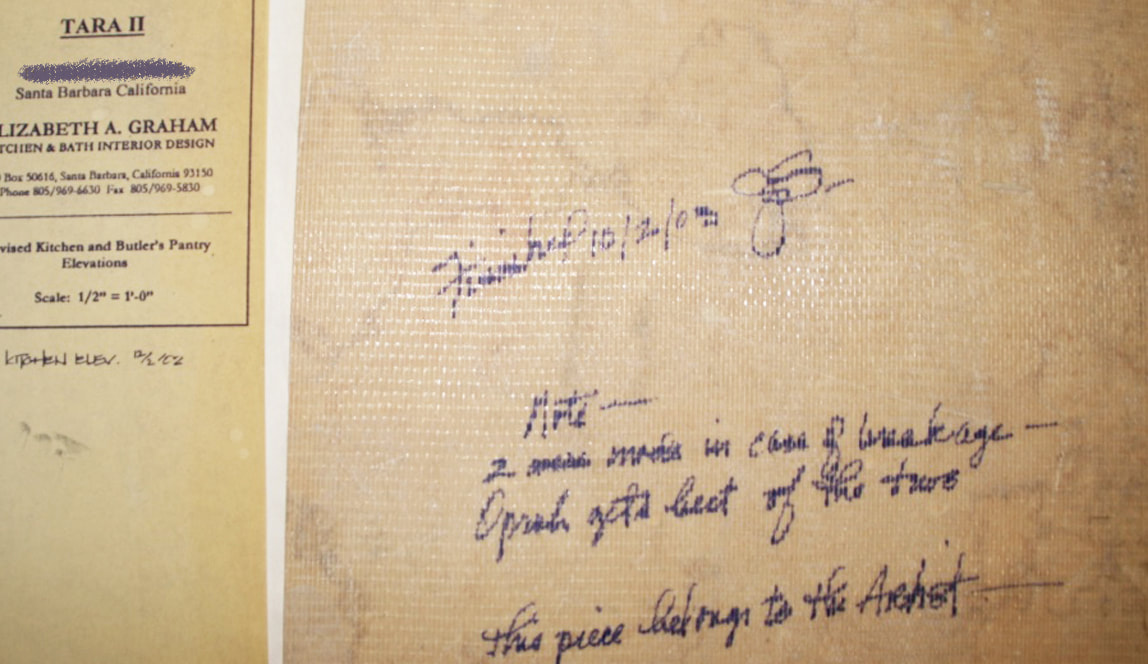 TARA II
Santa Barbara California
LIZABETH A. GRAHAM
TCHEN & BATH INTERIOR DESIGN
Box 50616, Santa Barbara, California 93150
Phone 805/969-6630 Fax 805/969-5830
vised Kitchen and Butler's Pantry
Elevations
Scale: 1/2" = 1'-0"
KITCHEN ELEV.
Finished 10/2/02
Note —
2 were made in case of breakage —
Oprah gets best of the two
This piece belongs to the Artist —